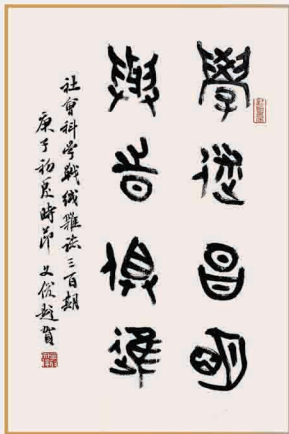 學從昌明
與時俱進
社會科學戰線雜誌三百期
庚子初夏時節 文俊越賀